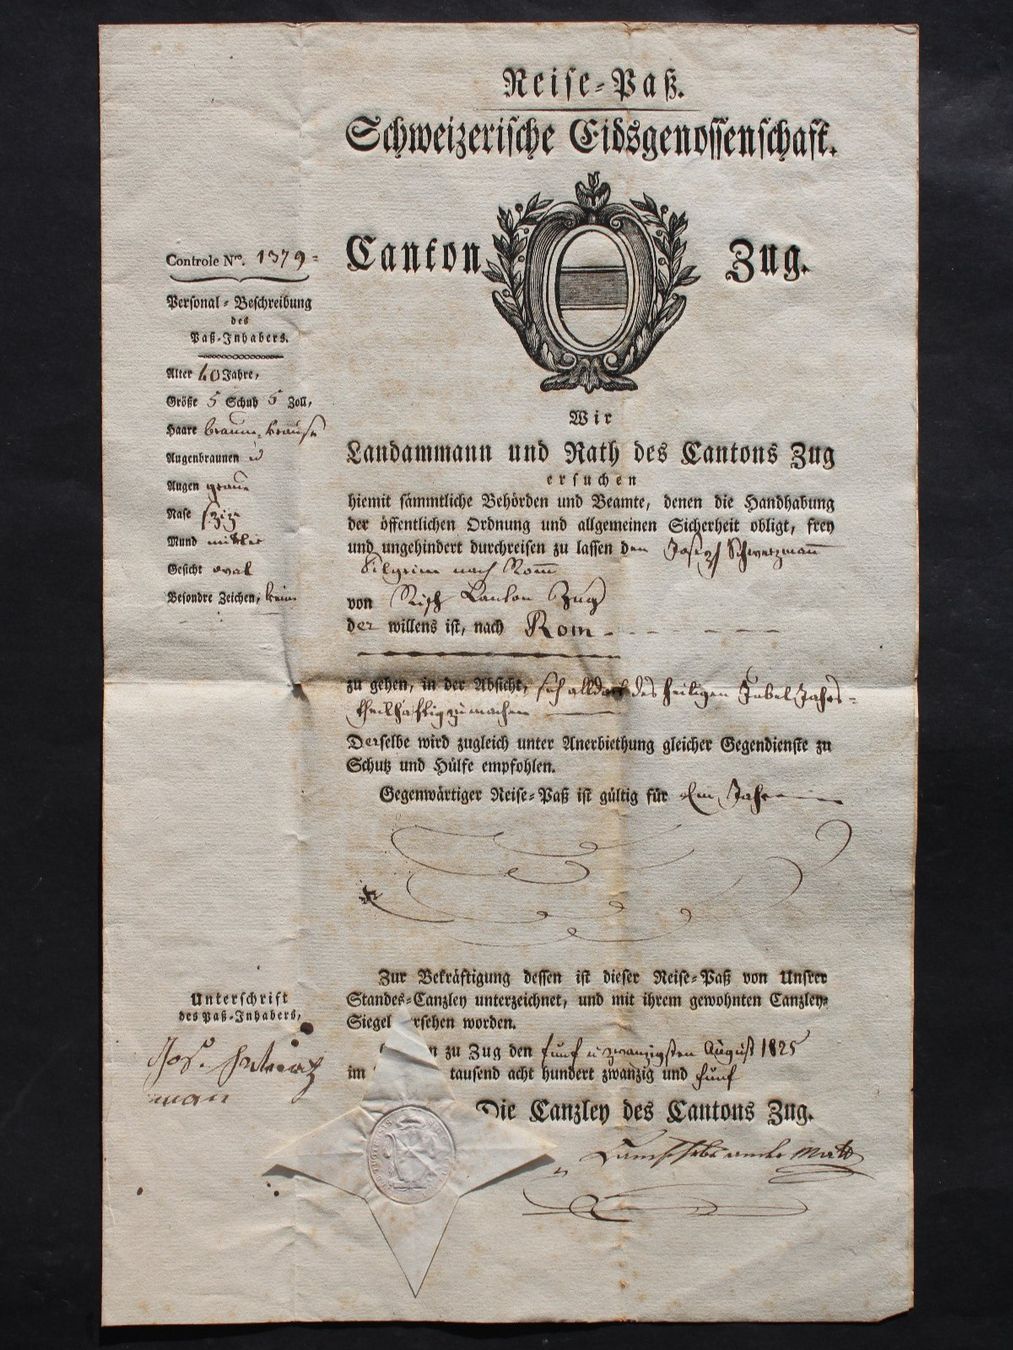 Reise-Paß.
Schweizerische Eidsgenossenschaft.
Canton Zug.
Controle Nro. 1379
Personal-Beschreibung
des
Paß-Inhabers.
Alter 40 Jahre,
Größe 5 Schuh 5 Zoll,
Haare braun, krause
Augenbraunen
Augen graue
Nase spitz
Mund mittler
Gesicht oval
Besondre Zeichen, keine
Wir
Landammann und Rath des Cantons Zug
ersuchen
hiemit sämmtliche Behörden und Beamte, denen die Handhabung
der öffentlichen Ordnung und allgemeinen Sicherheit obligt, frey
und ungehindert durchreisen zu lassen den Joseph Schwerzmann
Pilgrim nach Rom
von Risch Canton Zug
der willens ist, nach Rom
zu gehen, in der Absicht, sich alldort des heiligen Jubel Jahrs
theilhaftig zu machen
Derselbe wird zugleich unter Anerbiethung gleicher Gegendienste zu
Schutz und Hülfe empfohlen.
Gegenwärtiger Reise-Paß ist gültig für ein Jahr
Zur Bekräftigung dessen ist dieser Reise-Paß von Unsrer
Standes-Canzley unterzeichnet, und mit ihrem gewohnten Canzley-
Siegel ersehen worden.
zu Zug den fünf u zwanzigsten August 1825
im tausend acht hundert zwanzig und fünf
Die Canzley des Cantons Zug.
Unterschrift
des Paß-Inhabers,
Jos. Schwärz
man